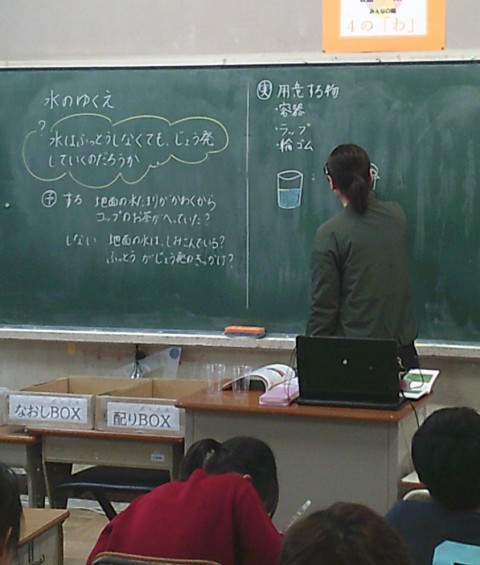 みんなの輪
4の「わ」
水のゆくえ
?
水はふっとうしなくても、じょう発
していくのだろうか
予 する 地面の水たまりがかわくから
コップのお茶がへっていた?
しない 地面の水は、しみこんでいる?
ふっとうがじょう発のきっかけ?
実 用意する物
・容器
・ラップ
・輪ゴム
なおしBOX
配りBOX